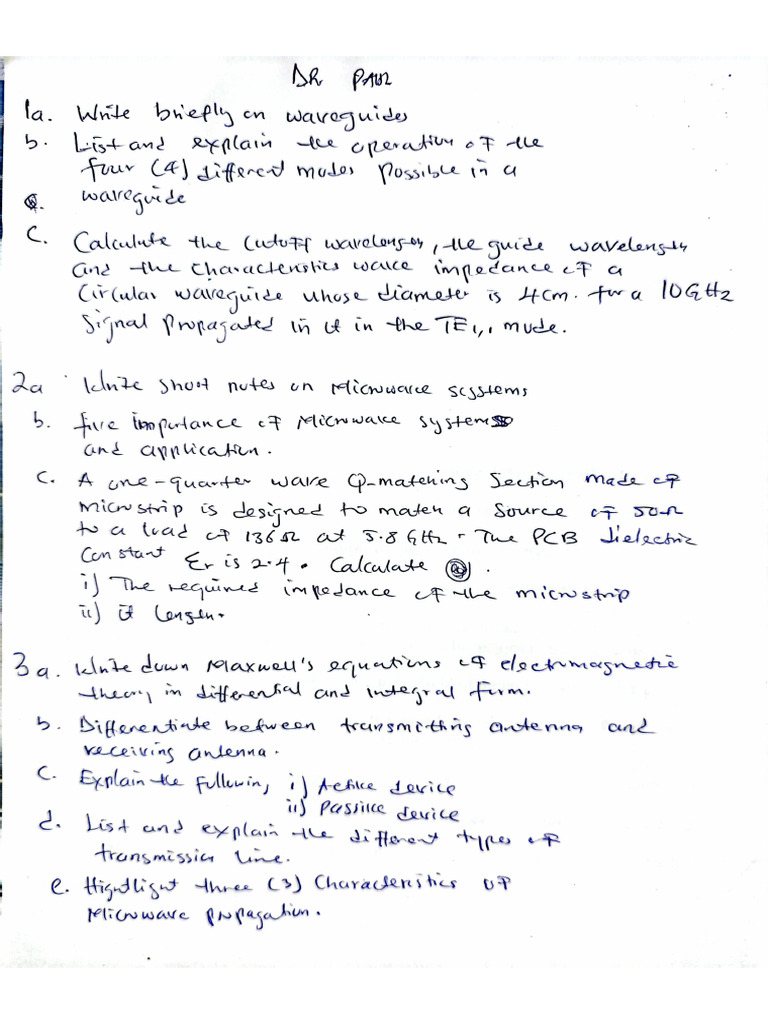 DR PAUL
1a. Write briefly on waveguides
b. List and explain the operation of the
four (4) different modes possible in a
waveguide
C. Calculate the cutoff wavelength, the guide wavelength
and the characteristics wave impedance of a
Circular waveguide whose diameter is 4cm. for a 10GHz
Signal propagated in it in the TE1,1 mode.
2a Write short notes on Microwave systems
b. five importance of Microwave systems
and application.
C. A one-quarter wave Q-matching Section made of
microstrip is designed to match a Source of 50Ω
to a load of 136Ω at 5.8GHz. The PCB dielectric
Constant Er is 2.4. Calculate .
i) The required impedance of the microstrip
ii) it length.
3a. Write down Maxwell's equations of electromagnetic
theory in differential and integral form.
b. Differentiate between transmitting antenna and
receiving antenna.
C. Explain the following i) Active device
ii) Passive device
d. List and explain the different types of
transmission line.
e. Hightlight three (3) Characteristics of
Microwave propagation.